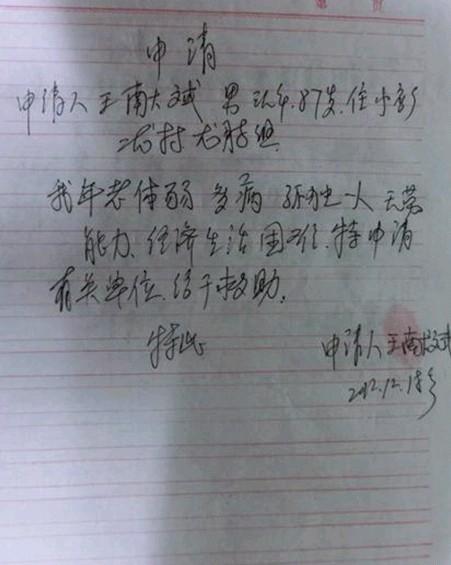 申请
申请人王南 斌 男 现年.87岁.住小
村 组
我年老体弱 多病 孤独一人 无劳
能力、经济生活困难.特申请
有关单位.给予救助。
特此
申请人王南 斌